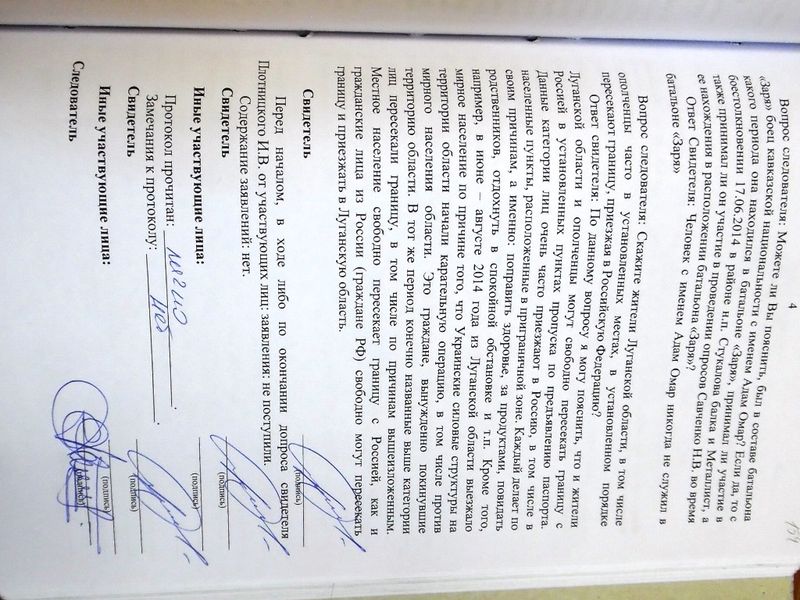 4
Вопрос следователя: Можете ли Вы пояснить, был в составе батальона
«Заря» боец кавказской национальности с именем Адам Омар? Если, да, то с
какого периода она находился в батальоне «Заря», принимал ли участие в
боестолкновении 17.06.2014 в районе н.п. Стукалова балка и Металист, а
также принимал ли он участие в проведении опросов Савченко Н.В. во время
ее нахождения в расположении батальона «Заря»?
Ответ Свидетеля: Человек с именем Адам Омар никогда не служил в
батальоне «Заря»
Вопрос следователя: Скажите жители Луганской области, в том числе
ополченцы часто в установленных местах, в установленном порядке
пересекают границу, приезжая в Российскую Федерацию?
Ответ свидетеля: По данному вопросу я могу пояснить, что и жители
Луганской области и ополченцы могут свободно пересекать границу с
Россией в установленных пунктах пропуска по предъявлению паспорта.
Данные категории лиц очень часто приезжают в Россию, в том числе в
населенные пункты, расположенные в приграничной зоне. Каждый делает по
своим причинам, а именно: поправить здоровье, за продуктами, повидать
родственников, отдохнуть в спокойной обстановке и т.п. Кроме того,
например, в июне – августе 2014 года из Луганской области выезжало
мирное население по причине того, что Украинские силовые структуры на
территории области начали карательную операцию, в том числе против
мирного населения области. Это граждане, вынужденно покинувшие
территорию области. В тот же период конечно названные выше категории
лиц пересекали границу, в том числе по причинам вышеизложенным.
Местное население свободно пересекает границу с Россией, как и
гражданские лица из России (граждане РФ) свободно могут пересекать
границу и приезжать в Луганскую область.
Свидетель
(подпись)
Перед началом, в ходе либо по окончании допроса свидетеля
Плотницкого И.В. от участвующих лиц: заявления: не поступили.
Содержание заявлений: нет.
Свидетель
(подпись)
Иные участвующие лица:
(подпись)
Протокол прочитан: лично
Замечания к протоколу: нет
Свидетель
(подпись)
Иные участвующие лица:
(подпись)
Следователь
(подпись)